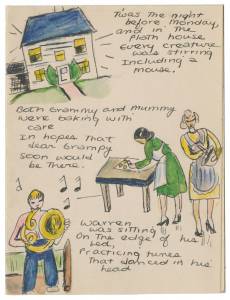 'twas the night
before Monday,
and in the
Plath house
Every creature
was stirring
Including a
mouse.
Both Grammy and Mummy
were baking with
care
In hopes that
dear Grampy
soon would
be there.
Warren
was sitting
On the edge of his
bed,
Practicing tunes
That danced in his
head